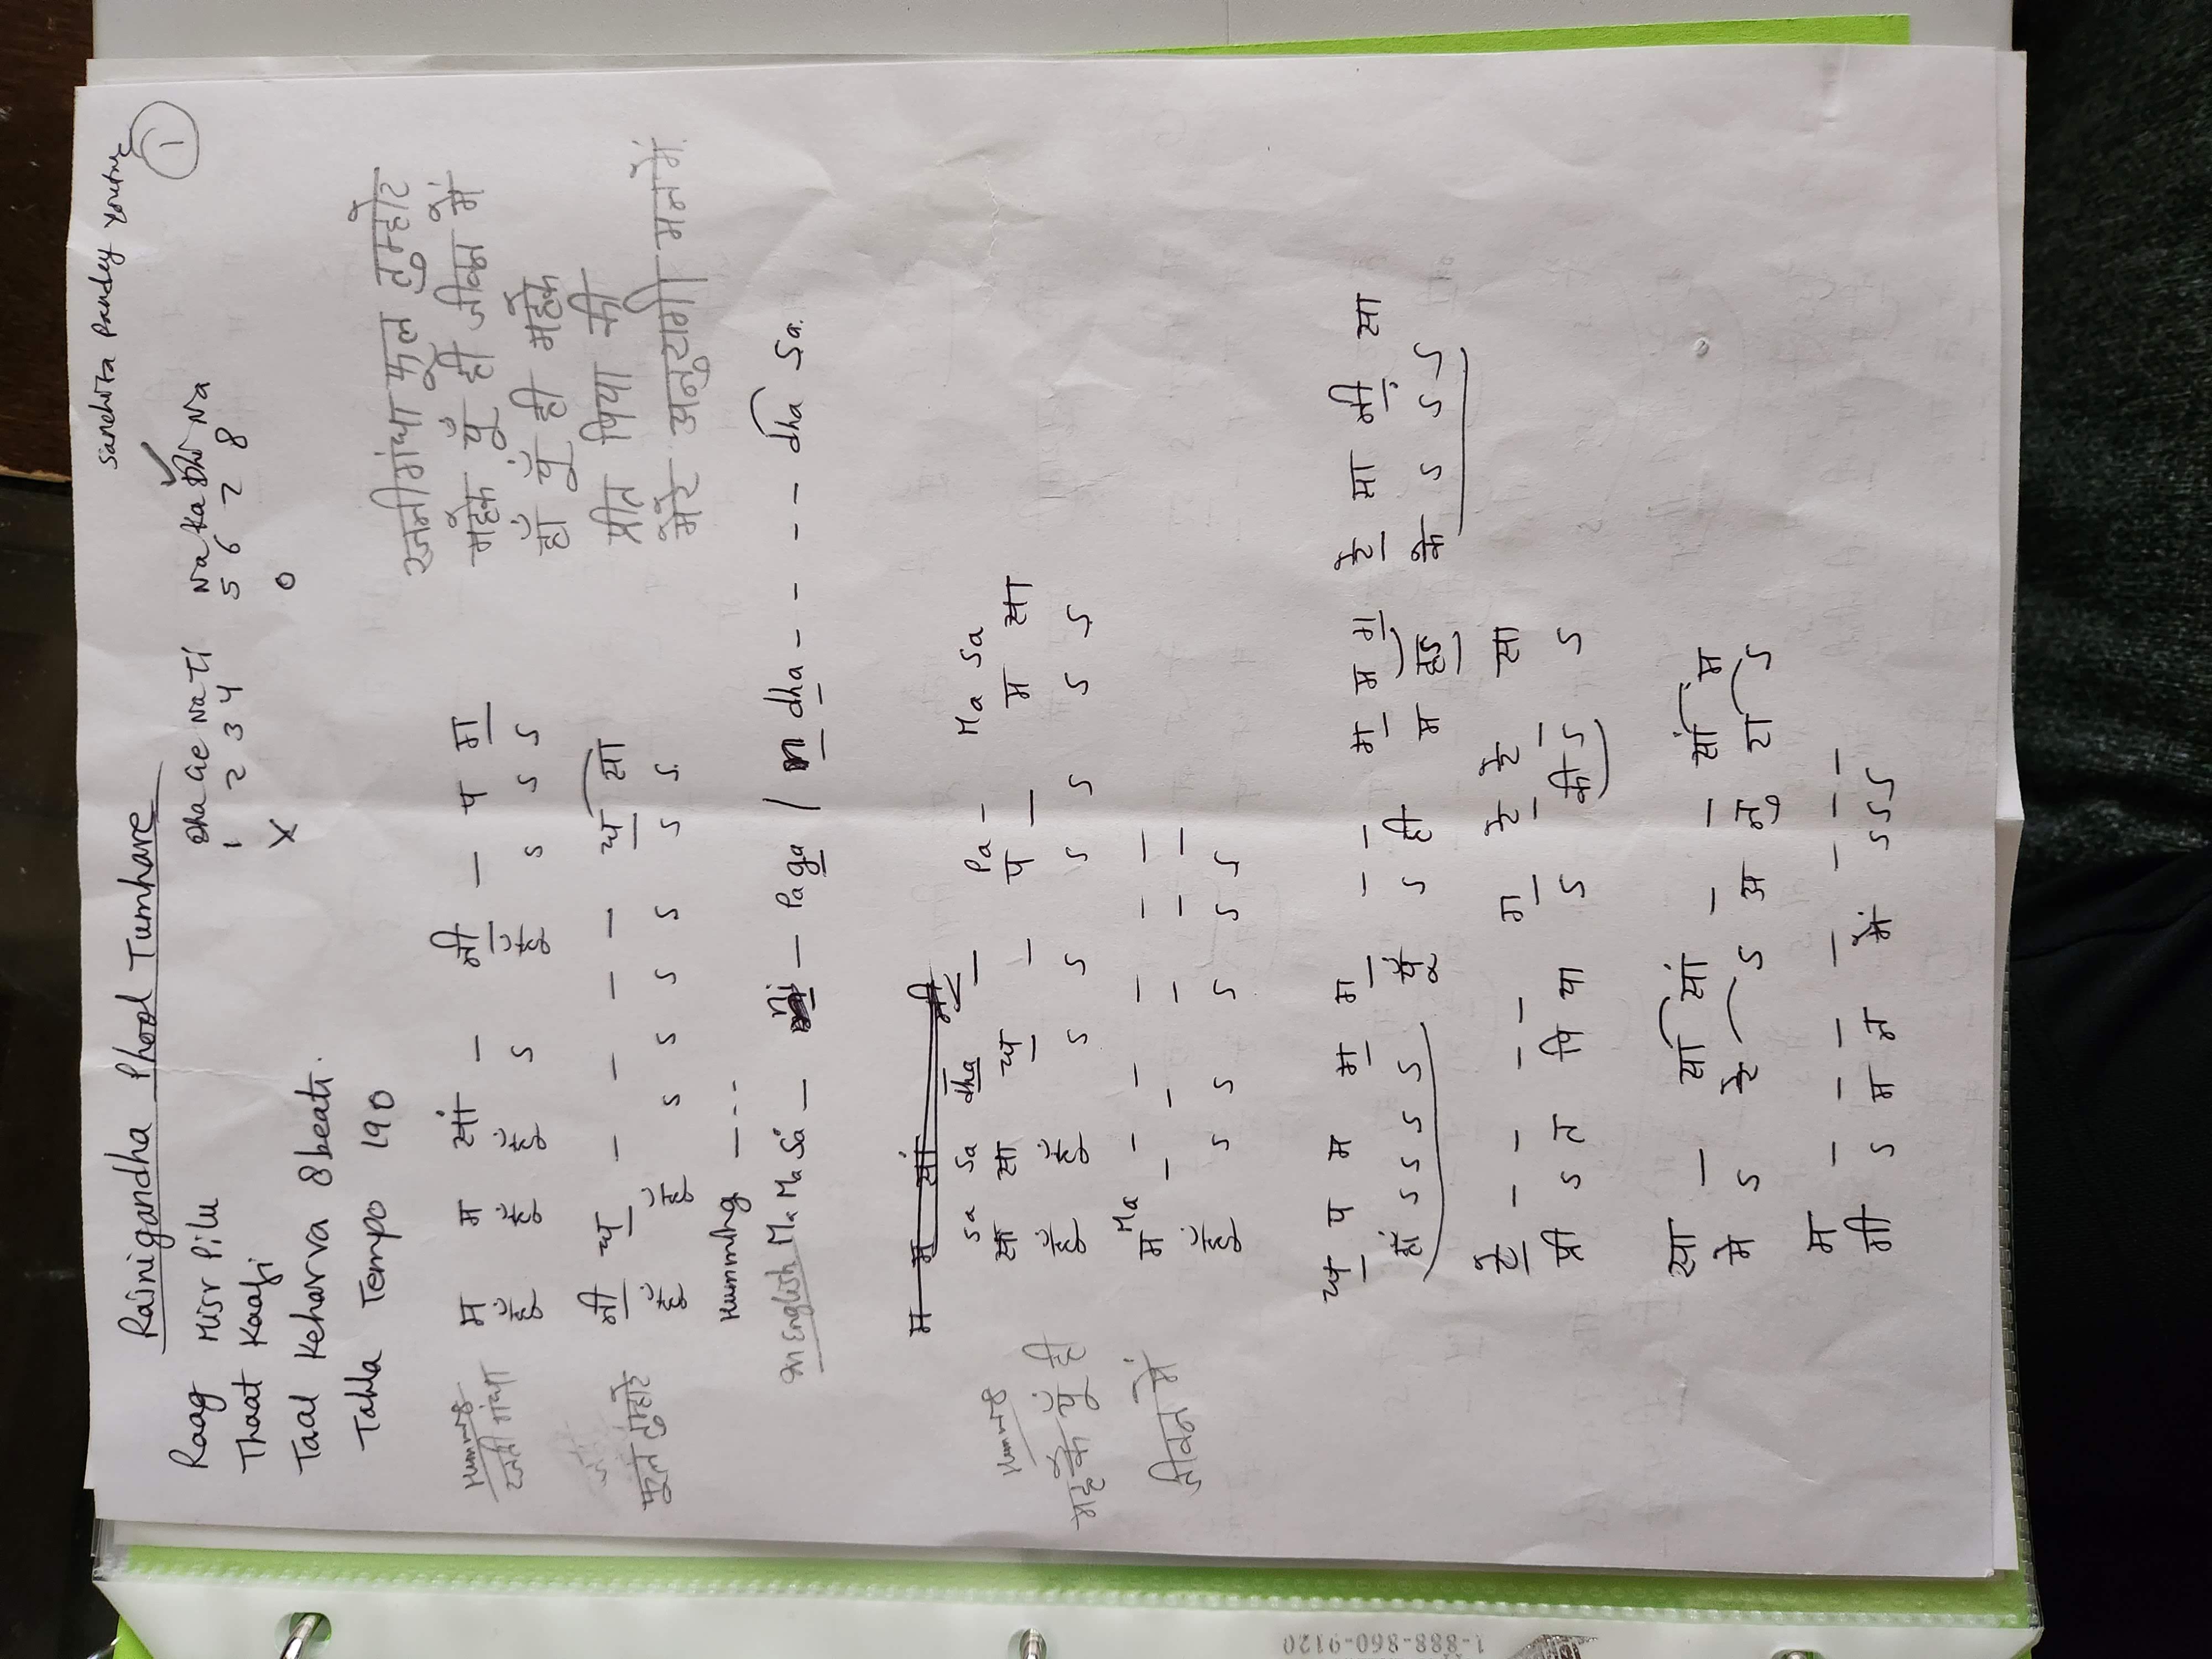 Sanchita Pandey Youtube
①
Rajnigandha Phool Tumhare
Raag Misr Pilu
Thaat Kaafi
Taal Keharva 8 beats.
Tabla Tempo 190
Dha Ge Na Ti Na Ka Dhi Na
1 2 3 4 5 6 7 8
X 0
रजनीगंधा फूल तुम्हारे
महके यूँ ही जीवन में
हाँ यूँ ही महके
प्रीत पिया की
मेरे अनुरागी मन में
Humming म म सां – नी – प ग
रजनीगंधा हूँ हूँ हूँ ऽ हूँ ऽ ऽ ऽ
नी ध – – – – ध सा
फूल तुम्हारे हूँ हूँ ऽ ऽ ऽ ऽ ऽ ऽ
Humming – - - -
In English Ma Ma Sa – ni – Pa ga / n dha - - - - dha Sa.
म म सां नी
Sa Sa dha – Pa - Ma Sa
Humming सा सा ध – प – म सा
महके यूँ ही हूँ हूँ ऽ ऽ ऽ ऽ ऽ ऽ
म Ma – – – – – –
जीवन में – – – – –
हूँ ऽ ऽ ऽ ऽ ऽ
ध प म ग ग ग – – ग म ग रे सा नी सा
हां ऽ ऽ ऽ ऽ यूं ऽ ही म हऽ के ऽ ऽ ऽ
रे – – – – ग रे रे सा
प्री ऽ त पि या ऽ की ऽ ऽ
सा – सा सां – – सां म
मे ऽ रे ऽ अ नु रा ऽ
म – – – – – – –
गी ऽ म न में ऽ ऽ ऽ
1-888-860-9120